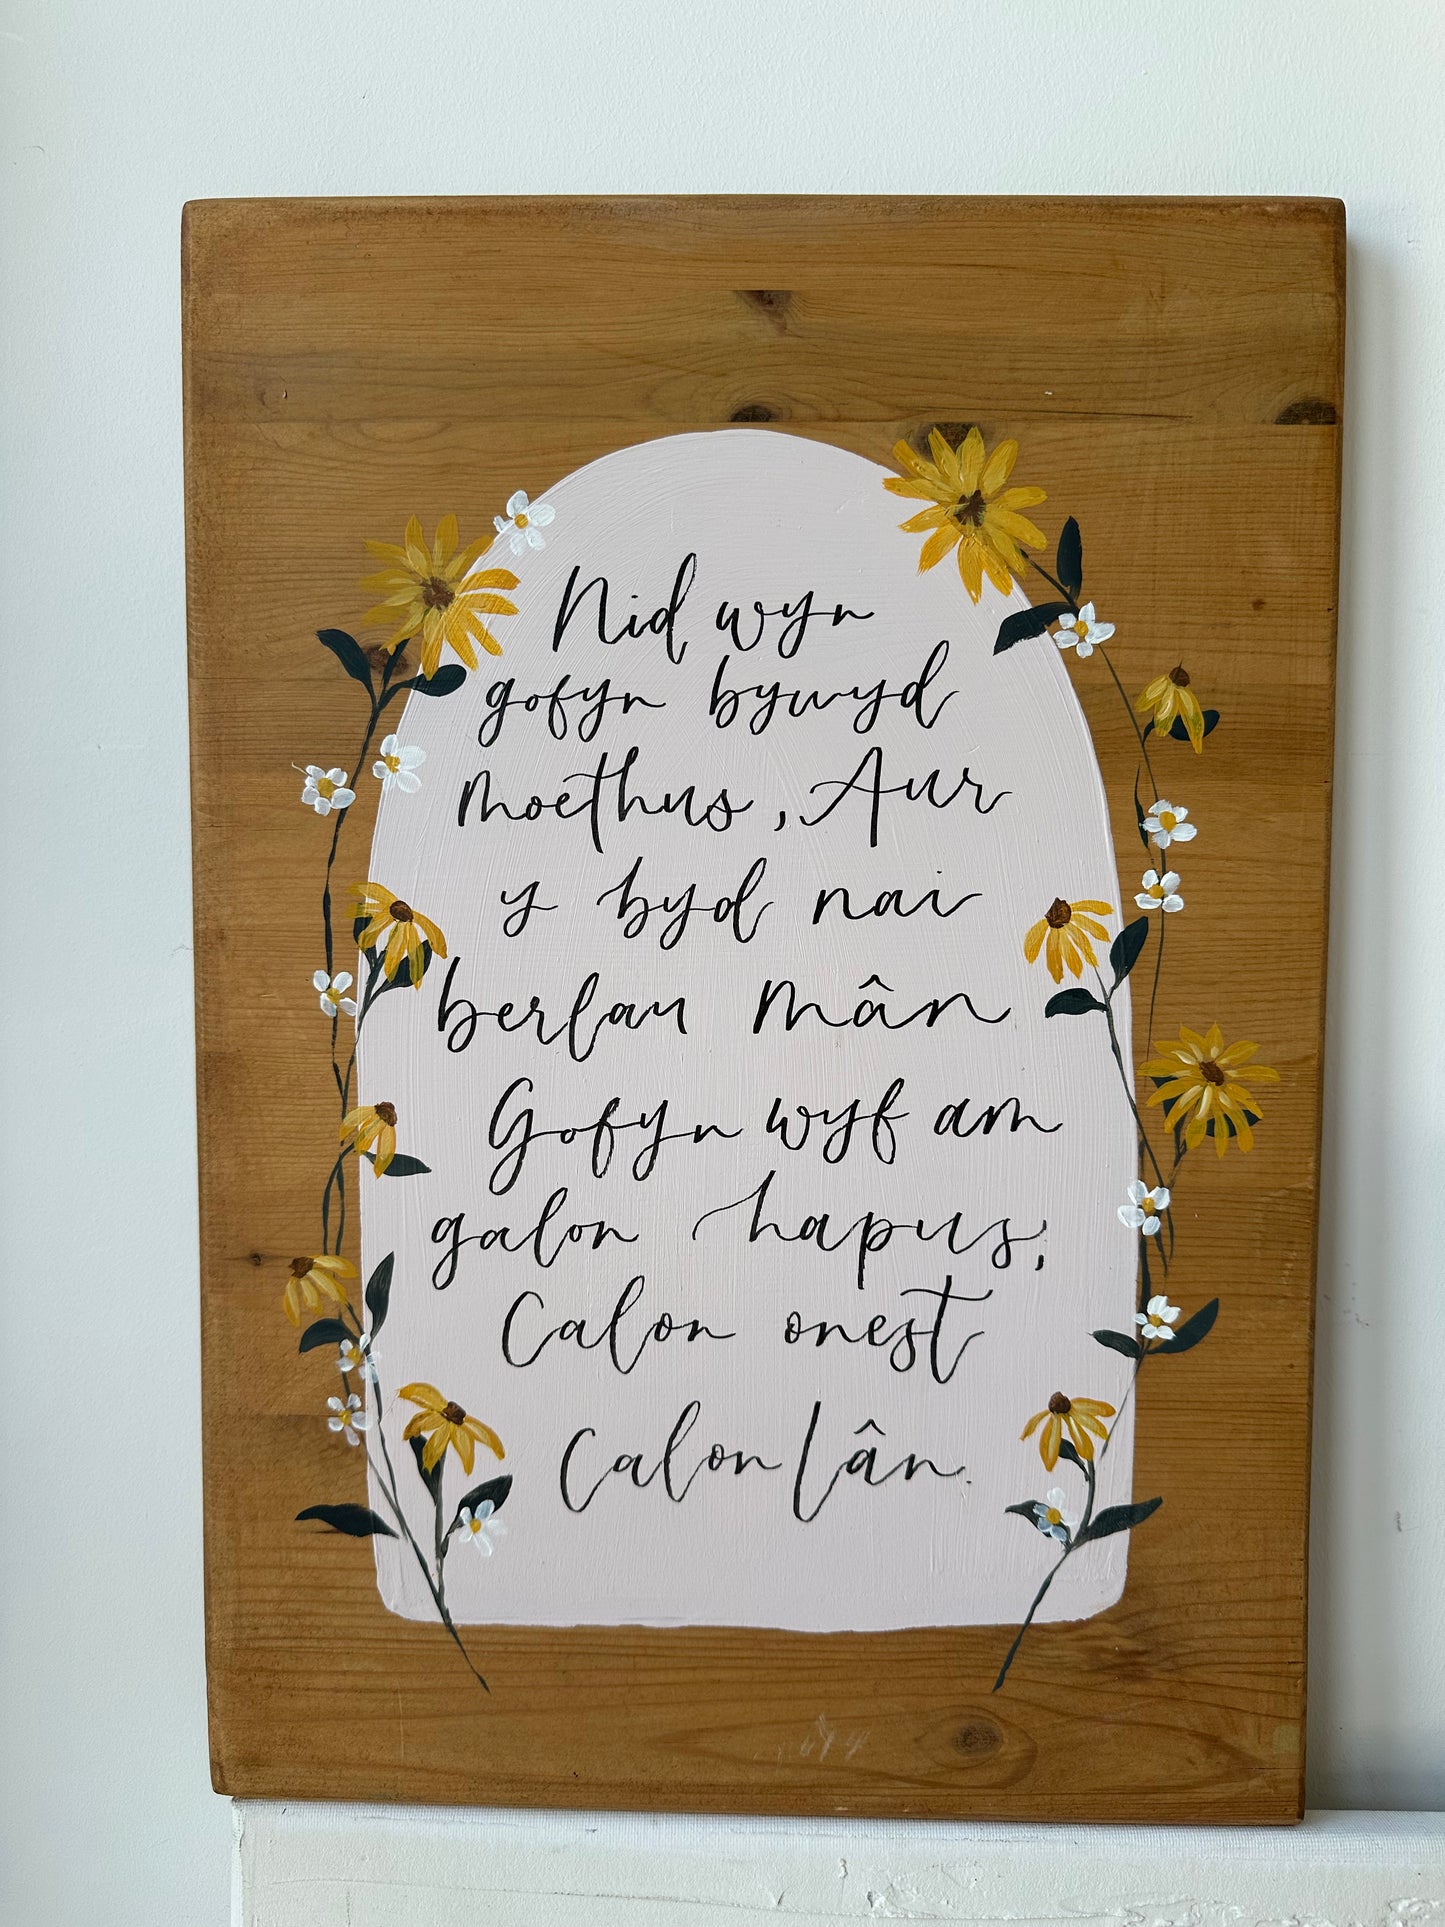 Nid wyn
gofyn bywyd
moethus, Aur
y byd nai
berlau mân
Gofyn wyf am
galon hapus,
Calon onest
Calon lân.